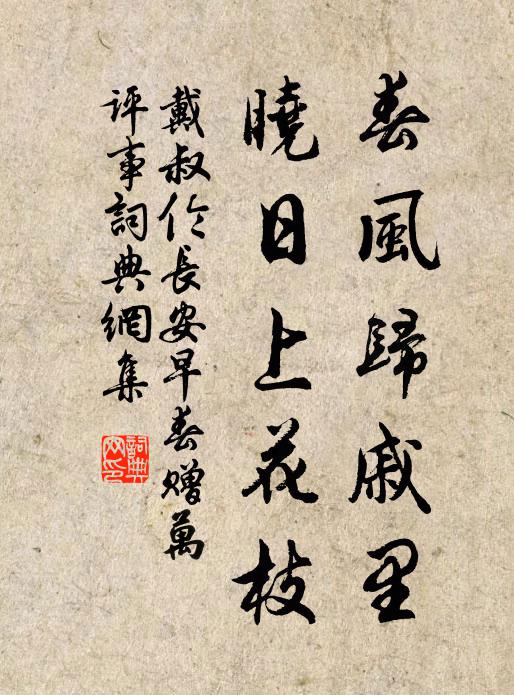 春風歸戚里
曉日上花枝
戴叔伦長安早春贈萬
评事詞典網集
詞典
网印